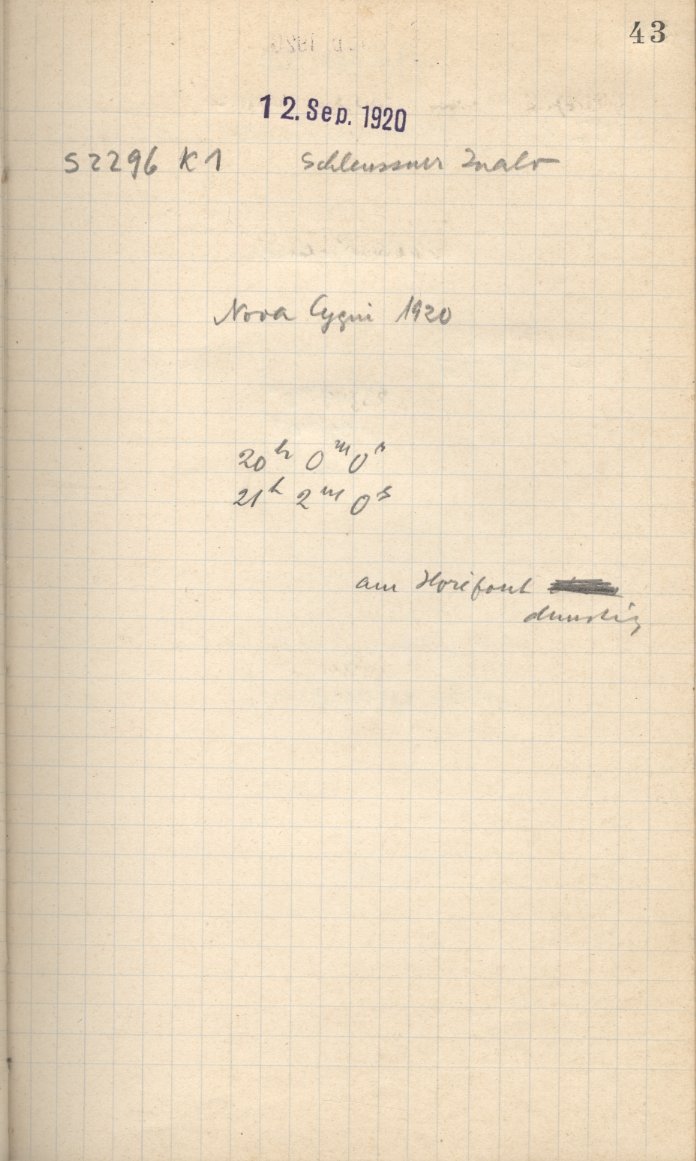 43
12. Sep. 1920
S2296 K1 Schleussner
Nova Cygni 1920
20h 0m 0s
21h 2m 0s
am Horizont
dunstig